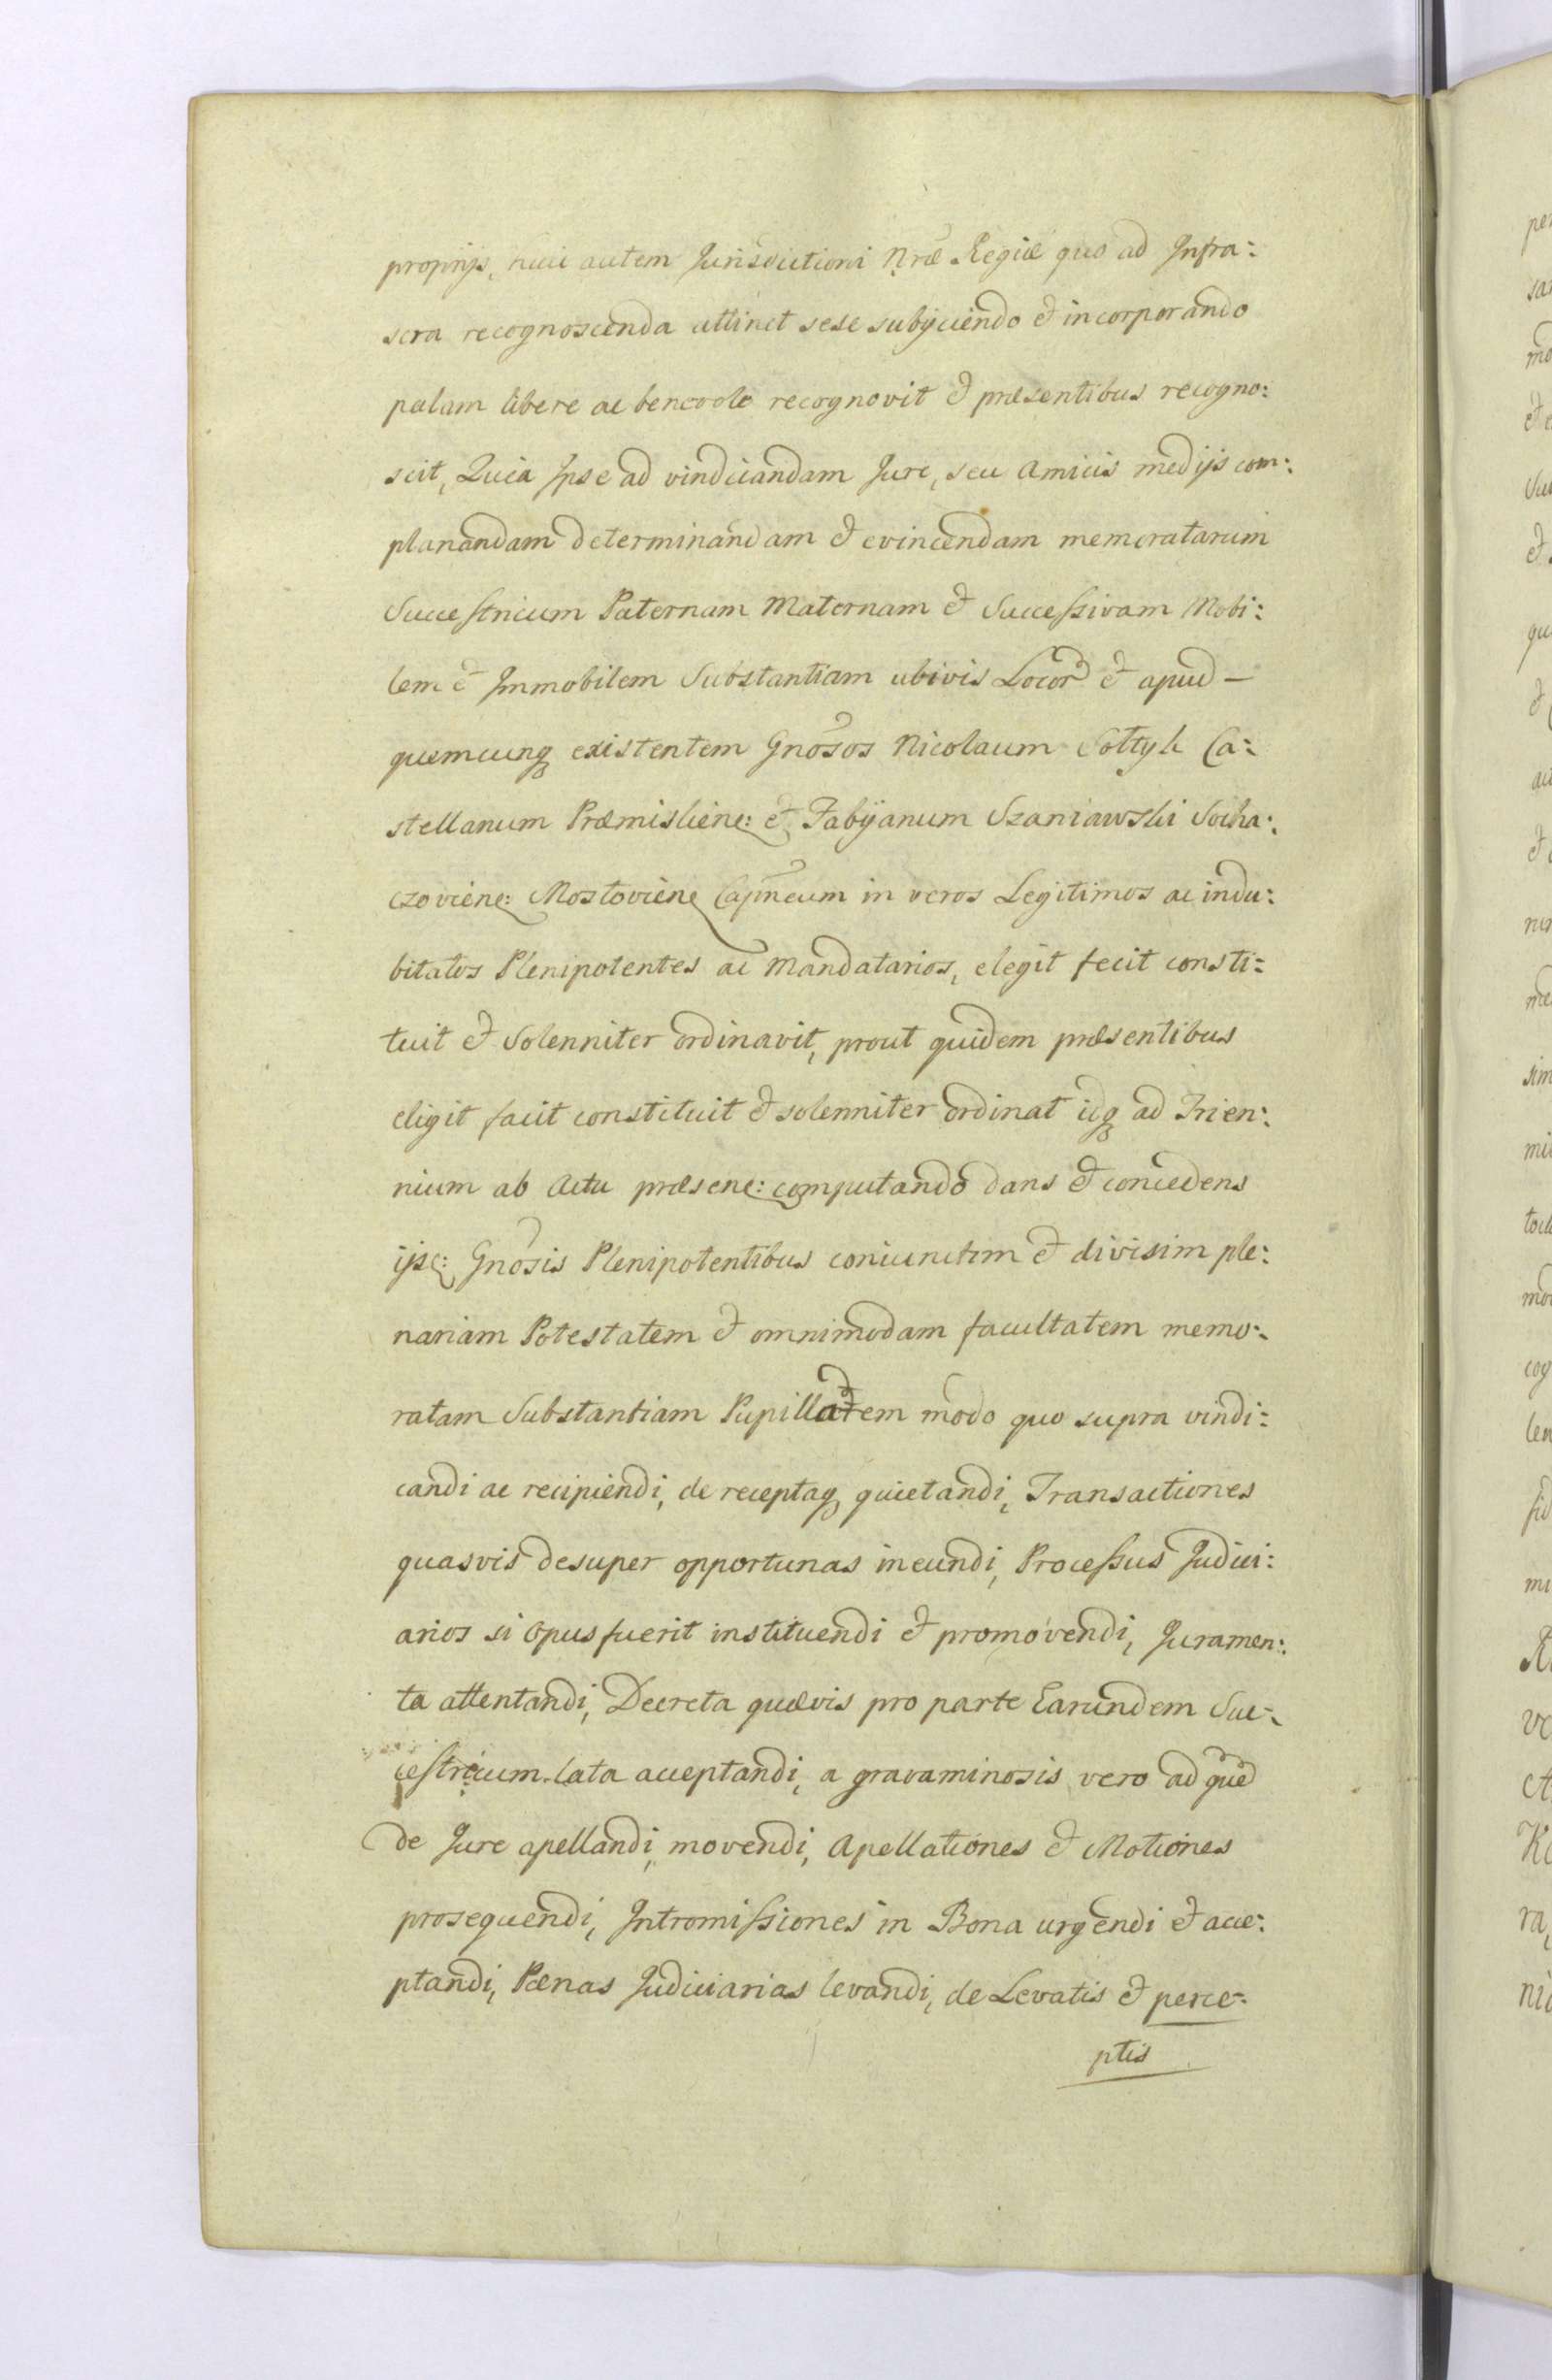 proprijs, huic autem Jurisdictioni Nræ Regiæ quo ad Infra:
scra recognoscenda attinet sese subijciendo et incorporando
palam libere ac benevole recognovit et præsentibus recogno:
scit, Quia Ipse ad vindicandam Jure, seu Amicis medijs com:
planandam determinandam et evincendam memoratarum
Successtricum Paternam Maternam et Successivam Mobi:
lem et Immobilem Substantiam ubivis Locor et apud –
quemcunq existentem Gnosos Nicolaum Sołtyk Ca:
stellanum Præmisliene: et Fabijanum Szaniawski Socha:
czoviene: Mostoviene Capneum in veros Legitimos ac indu:
bitatos Plenipotentes ac Mandatarios, elegit fecit consti:
tuit et Solenniter ordinavit, prout quidem præsentibus
eligit facit constituit et solenniter ordinat idq ad Trien:
nium ab Actu præsene: computando dans et concedens
ijsc: Gnosis Plenipotentibus coniunctim et divisim ple:
nariam Potestatem et omnimodam facultatem memo:
ratam Substantiam Pupillarem modo quo supra vindi:
candi ac recipiendi, de receptaq quietandi, Transactiones
quasvis desuper opportunas ineundi, Processus Judici:
arios si opus fuerit instituendi et promovendi, Juramen:
ta attentandi, Decreta quævis pro parte Earundem Suc:
cestricum lata acceptandi, a gravaminosis vero ad qued
de Jure apellandi, movendi, Apellationes et Motiones
prosequendi, Intromissiones in Bona urgendi et acce:
ptandi, Pænas Judiciarias levandi, de Levatis et perce:
ptis